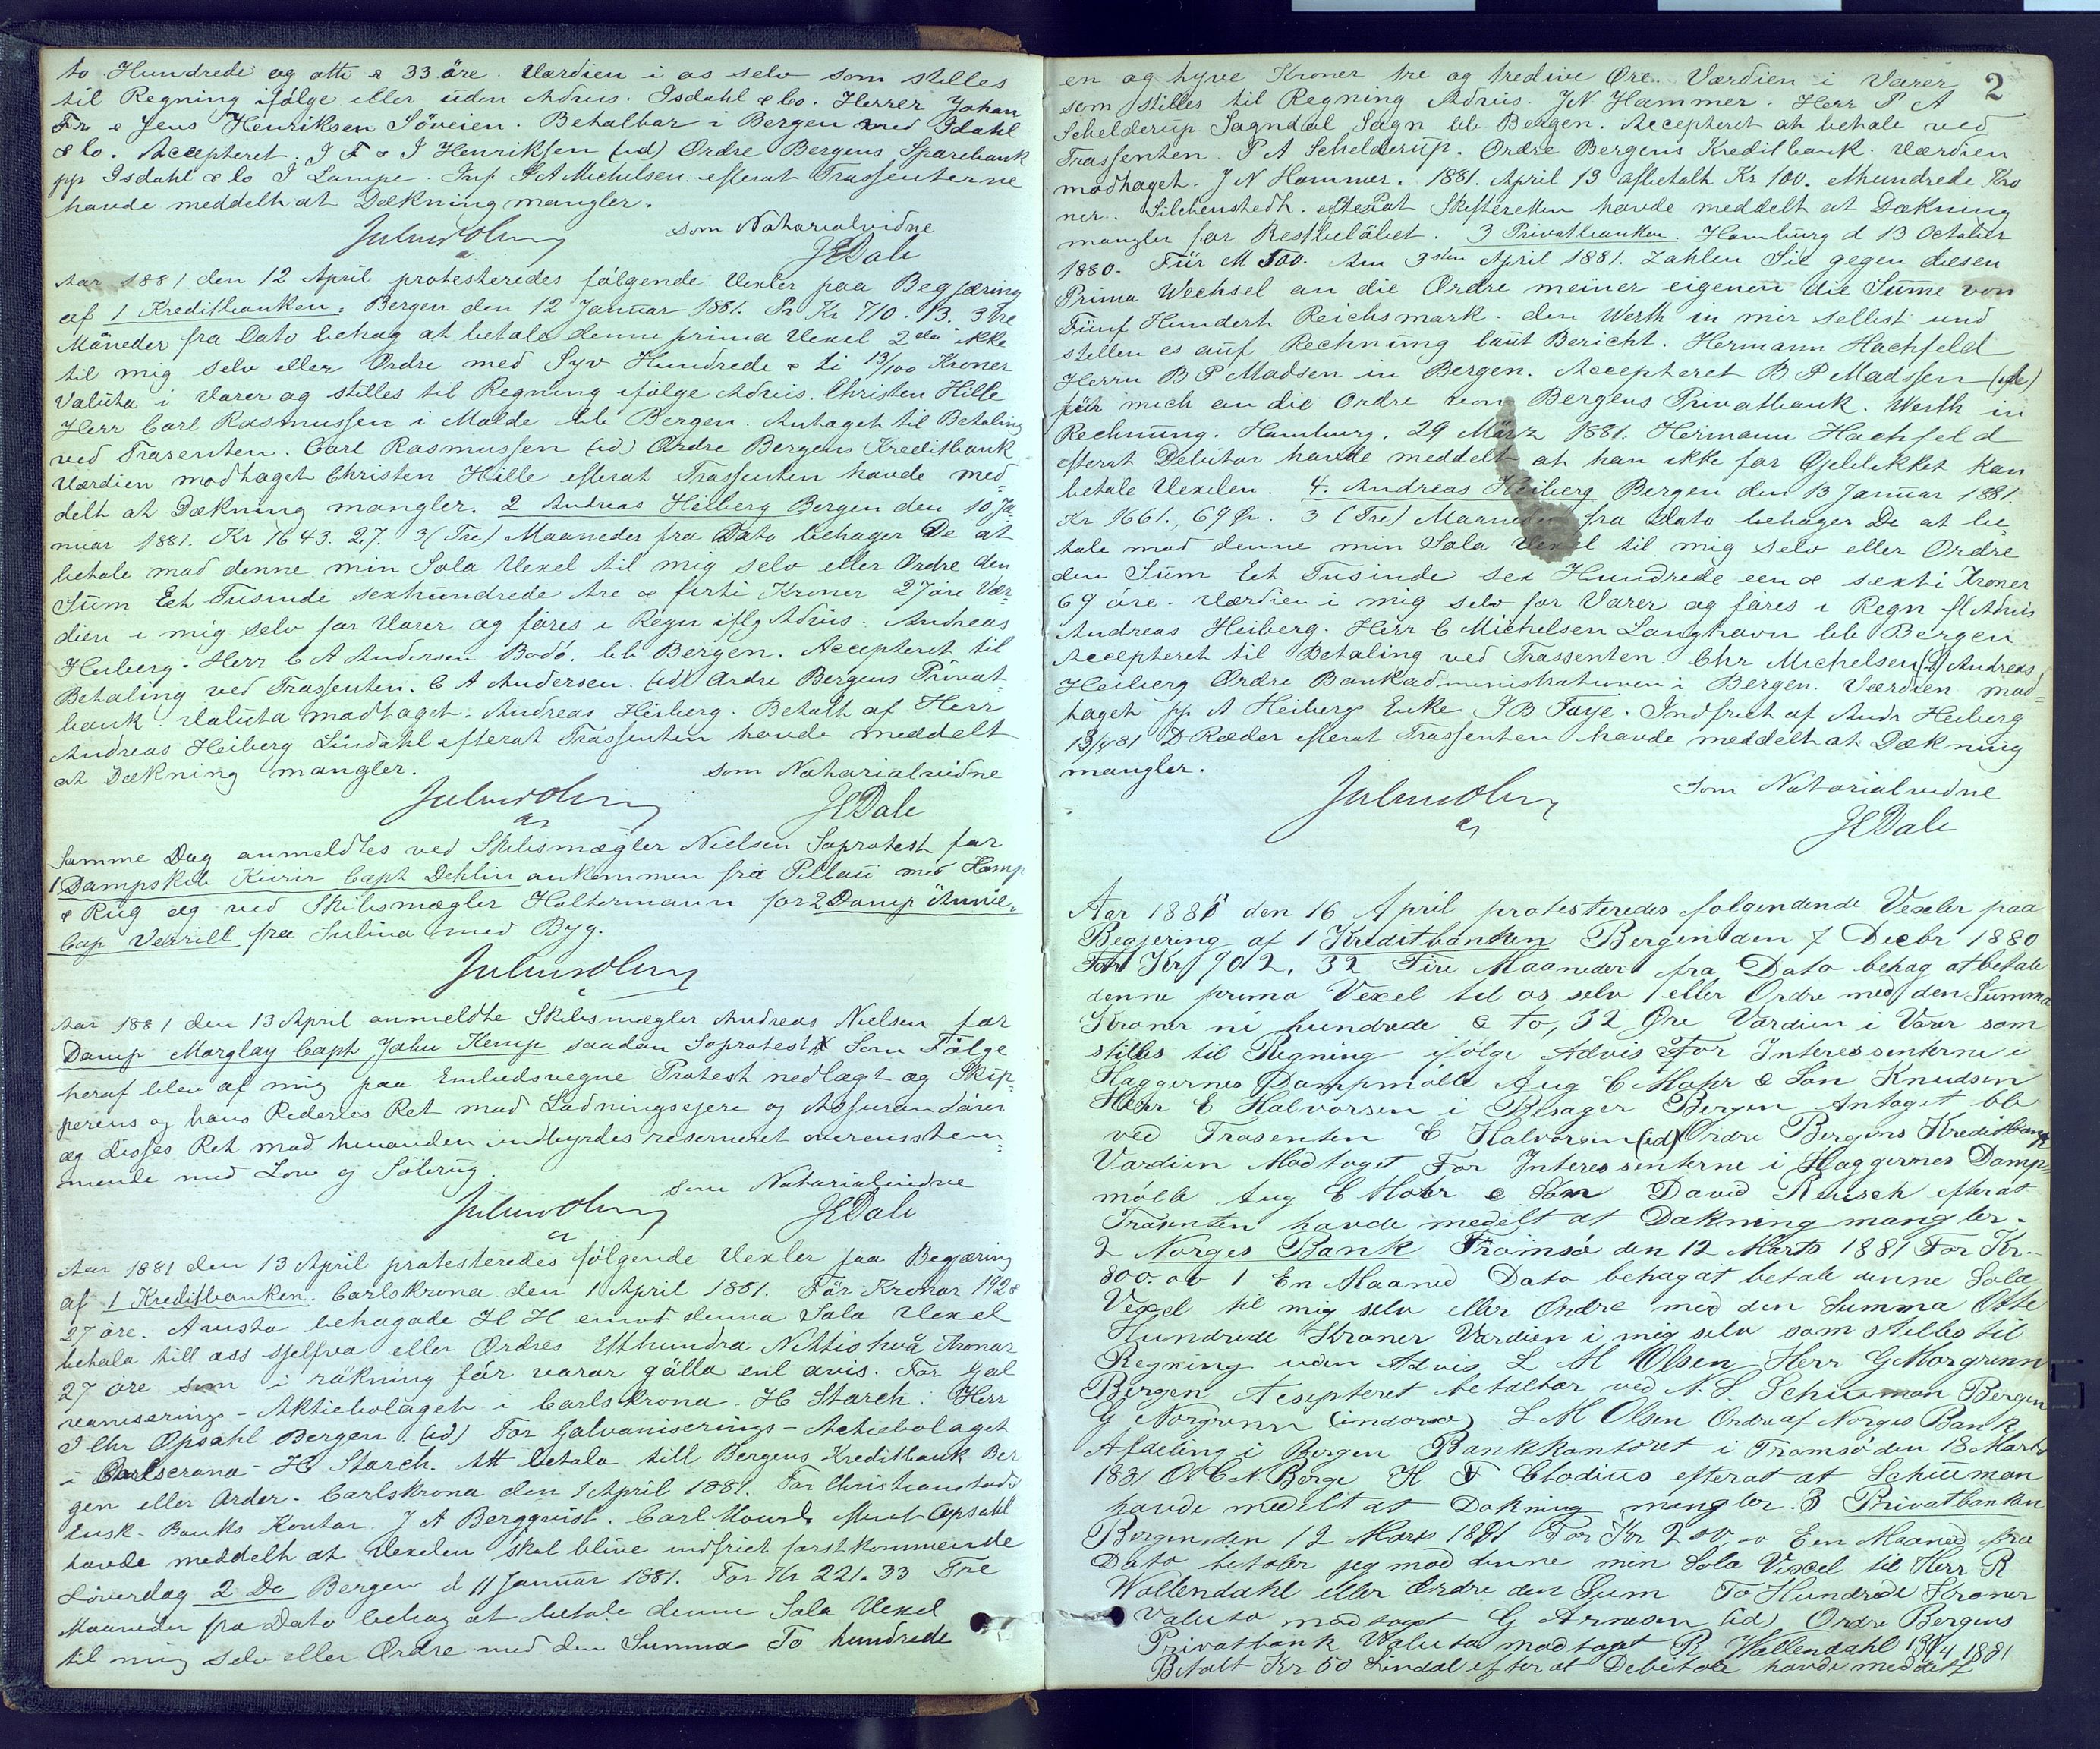 to Hundrede og otti & 33 öre. Værdien i os selv som stilles
til Regning ifölge eller uden Advis. Isdahl & Co. Herrer Johan
Fr & Jens Henriksen Söveien. Betalbar i Bergen ved Isdahl
& Co. Accepteret. J F & J Henriksen (id) Ordre Bergens Sparebank
pp Isdahl & Co J Lampe. Inf P A Michelsen. efterat Trassenterne
havde meddelt at Dækning mangler.
som Notarialvidne
JEDale
Aar 1881 den 12 April protesteredes fölgende Vexler paa Begjæring
af 1 Kreditbanken: Bergen den 12 Januar 1881. Kr 710. 13. 3 tre
Måneder fra Dato behag at betale denne prima Vexel 2da ikke
til mig selv eller Ordre med Syv Hundrede & ti 13/100 Kroner
Valuta i Varer og stilles til Regning ifölge Advis. Christen Hille
Herr Carl Rasmussen i Molde bb Bergen. Antaget til Betaling
ved Trasenten. Carl Rasmussen (id) Ordre Bergens Kreditbank
Værdien modtaget Christen Hille efterat Trassenten havde med=
delt at Dækning mangler. 2 Andreas Heiberg Bergen den 10 Ja=
nuar 1881. Kr 1643. 27. 3 (Tre) Maaneder fra Dato behager De at
betale mod denne min Sola Vexel til mig selv eller Ordre den
Sum Eet Tusinde sexhundrede tre & firti Kroner 27 öre Vær=
dien i mig selv for Varer og föres i Regn iflg Advis. Andreas
Heiberg. Herr C A Andersen Bodö. bb Bergen. Accepteret til
Betaling ved Trassenten. C A Andersen. (id) Ordre Bergens Privat=
bank. Valuta modtaget. Andreas Heiberg. Betalt af Herr
Andreas Heiberg Lindahl efterat Trassenten havde meddelt
at Dækning mangler.
som Notarialvidne
JEDale
Samme Dag anmeldtes ved Skibsmægler Nielsen Soprotest for
1 Dampskib Kurir Capt Dehlin ankommen fra Pillau med Hamp
& Rug og ved Skibsmægler Haltermann for 2 Damp Annie
Cap Verrill fra Sulina med Byg.
Aar 1881 den 13 April anmeldte Skibsmægler Andreas Nielsen for
Damp Morglay Capt John Kemp saadan Soprotest. Som Fölge
heraf blev af mig paa Embedsvegne Protest nedlagt og Skip=
perens og hans Rederies Ret mod Ladningsejere og Assurandörer
og disses Ret mod hinanden indbyrdes reserveret overensstem=
mende med Lov og Söbrug.
som Notarialvidne
JEDale
Aar 1881 den 13 April protesteredes fölgende Vexler paa Begjæring
af 1 Kreditbanken. Carlskrona den 1 April 1881. För Kronor 192
27 öre. Avista behagade H H emot denna Sola Vexel
betala till oss sjelfva eller Ordres Etthundra Nittio två Kronor
27 öre som i räkning för varor gälla enl avis. För Gal
vaniserings-Aktiebolaget i Carlskrona. H Starch. Herr
J Chr Opsahl Bergen. (id) För Galvaniserings-Actiebolaget
i Carlscrona H Starch. Att betala till Bergens Kreditbank Ber
gen eller Order. Carlskrona den 1 April 1881. För Christianstads
Ensk. Banks Kontor. J A Bergqvist. Carl efterat Opsahl
havde meddelt at Vexelen skal blive indfriet förstkommende
Löverdag 2 Do Bergen d 11 Januar 1881. For Kr 221. 33 Tre
Maaneder fra Dato behag at betale denne Sola Vexel
til mig selv eller Ordre med den Summa To hundrede
2
en og tyve Kroner tre og tredive Øre. Værdien i Varer
som stilles til Regning Advis. J N Hammer. Herr P A
Schelderup Sogndal Sogn bb Bergen. Accepteret at betale ved
Trassenten. P A Schelderup. Ordre Bergens Kreditbank. Værdien
modtaget. J N Hammer. 1881. April 13 afbetalt Kr 100. ethundrede Kro
ner. Silchenstedt. efterat Skifteretten havde meddelt at Dækning
mangler for Restbelöbet. 3 Privatbanken. Hamburg d 13 October
1880. Für M 500. Am 3sten April 1881. Zahlen Sie gegen diesen
Prima Wechsel an die Ordre meiner eigenen die Sume von
Fünf Hundert Reichsmark. den Werth in mir selbst und
stellen es auf Rechnung laut Bericht. Hermann Hachfeld
Herrn B P Madsen in Bergen. Accepteret B P Madssen (ide)
für mich an die Ordre von Bergens Privatbank. Werth in
Rechnung. Hamburg. 29 März 1881. Hermann Hachfeld
efterat Debitor havde meddelt at han ikke for Öieblikket kan
betale Vexelen. 4. Andreas Heiberg Bergen den 13 Januar 1881.
Kr 1661., 69 Ör. 3 (Tre) Maaneder fra Dato behager De at be=
tale mod denne min Sola Vexel til mig selv eller Ordre
den Sum Eet Tusinde sex Hundrede een & sexti Kroner
69 öre. Værdien i mig selv for Varer og föres i Regn fl Advis
Andreas Heiberg. Herr C Michelsen Langhavn bb Bergen
Accepteret til Betaling ved Trassenten. Chr Michelsen (id) Andreas
Heiberg Ordre Bankadministrationen i Bergen. Værdien mod=
taget pp A Heiberg Enke J B Faye. Indfriet af Andr Heiberg
13/4 81 D Ræder efterat Trassenten havde meddelt at Dækning
mangler.
som Notarialvidne
JEDale
Aar 1881 den 16 April protesteredes folgendende Vexler paa
Begjering af 1 Kreditbanken Bergen den 7 Decbr 1880
For Kr 902, 32 Fire Maaneder fra Dato behag at betale
denne prima Vexel til os selv eller Ordre med den Summa
Kroner ni hundrede & to, 32 Øre Værdien i Varer som
stilles til Regning ifölge Advis For Interessenterne i
Haggernes Dampmölle Aug C Mohr & Sön Knudsen
Herr E Halvorsen i Bergen Antaget bb
ved Trasenten E Halvorsen (id) Ordre Bergens Kreditbank
Værdien Modtaget For Interessenterne i Haggernes Damp=
mölle Aug C Mohr & Sön David Reusch efterat
Trasenten havde medelt at Dækning mangler.
2 Norges Bank Tromsø den 12 Marts 1881 For Kr.
800. oo 1 En Maaned Dato behag at betale denne Sola
Vexel til mig selv eller Ordre med den Summa Otte
Hundrede Kroner Værdien i mig selv som stilles til
Regning uden Advis L M Olsen Herr G Norgrenn
Bergen Acsepteret betalbar ved N. S. Schiuman Bergen
G Norgrenn (indorse) L M Olsen Ordre af Norges Bank
Afdeling i Bergen Bankkontoret i Tromsö den 18 Marts
1881 O. C N. Berge H F Clodius efterat at Schiuman
havde medelt at Dækning mangler. 3 Privatbanken
Bergen den 12 Marts 1881 For Kr 200, oo Een Maaned fra
Dato betaler jeg mod denne min Sola Vexel til Herr R
Wollendahl eller Ordre den Sum To Hundrede Kroner
Valuta modtaget G Arnesen (id) Ordre Bergens
Privatbank Valuta modtaget R Wallendahl 13/4 1881
Betalt Kr 50 Lindal efter at Debitor havde meddelt